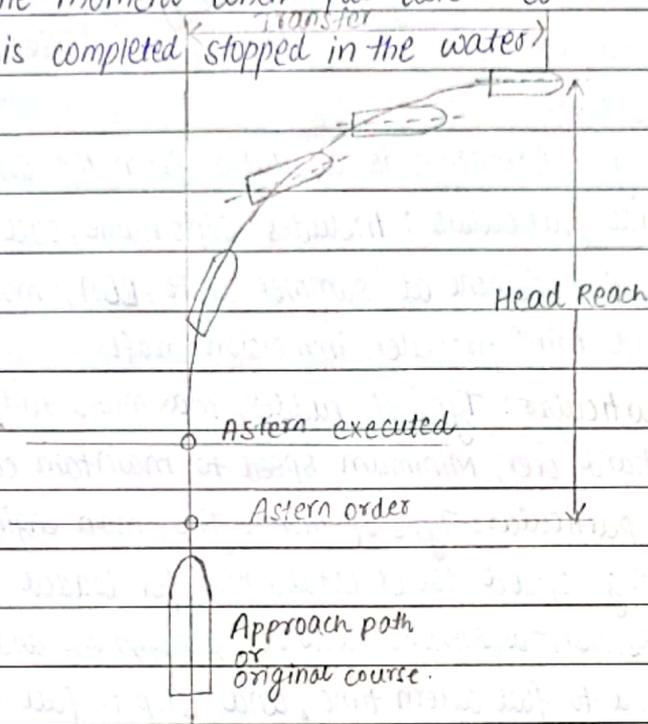 moment when
Transfer
is completed stopped in the water)
Head Reach
Astern executed
Astern order
Approach path
or
original course.